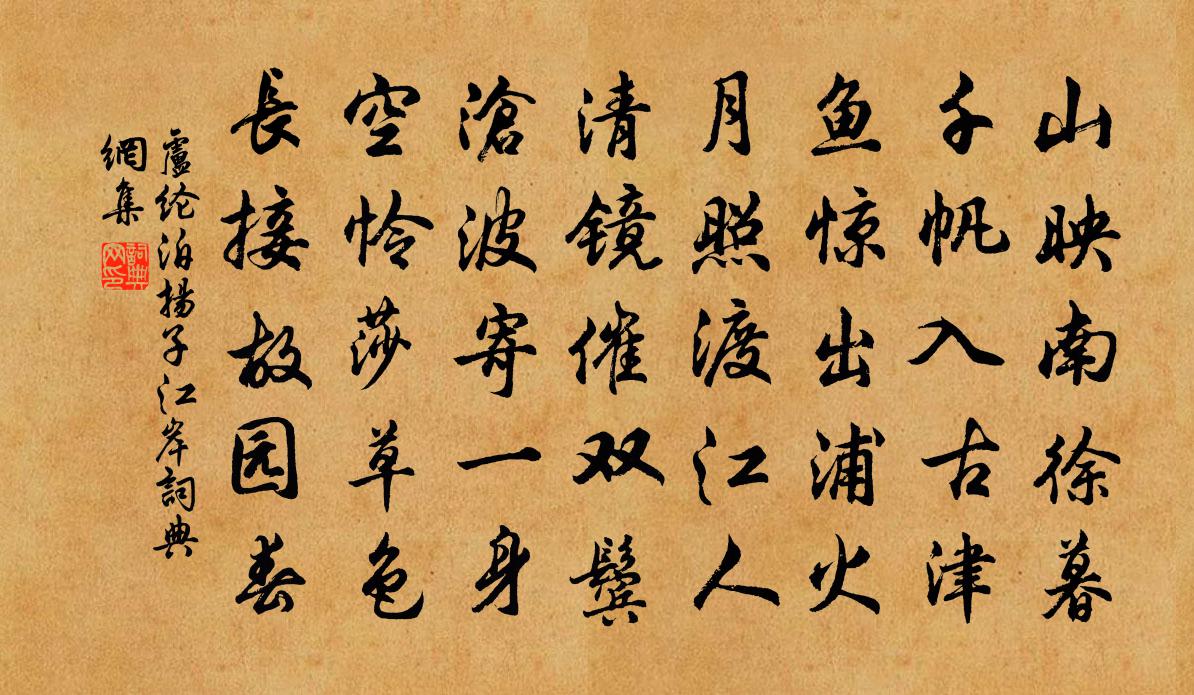 山映南徐暮
千帆入古津
鱼惊出浦火
月照渡江人
清镜催双鬓
滄波寄一身
空怜莎草色
長接故园春
盧纶泊揚子江岸詞典
網集
詞典
网印